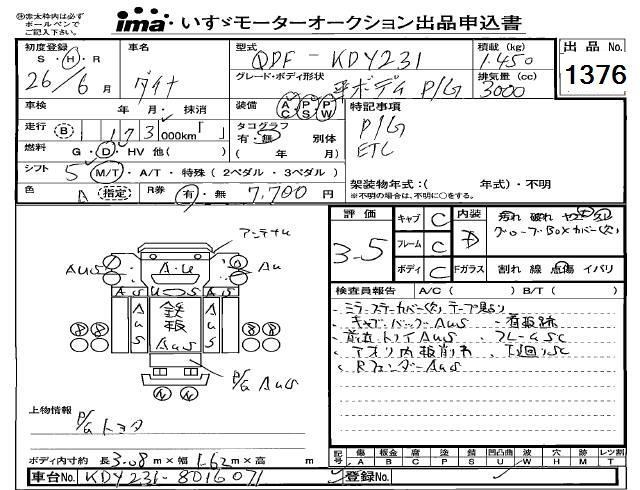 ㊟太枠内は必ず
ボールペンで
ご記入下さい。
ima いすゞモーターオークション出品申込書
出品 No.
1376
初度登録
S・H・R
26/6月
車名
ダイナ
型式
QDF-KDY231
積載 (kg)
1.450
グレード・ボディ形状
平ボディ P/G
排気量 (cc)
3000
車検 年 月・抹消
装備 AC PS PW
特記事項
P/G
ETC
走行 B 173 000km「 」
タコグラフ
有・無 別体
( 年 月)
燃料 G・D・HV 他( )
シフト 5 M/T・A/T・特殊(2ペダル・3ペダル)
架装物年式:( 年式)・不明
※不明の場合は、不明に○をする。
色 指定 R券 有・無 7,700 円
評価
3.5
キャブ C
フレーム C
ボディ C
内装 D
汚れ 破れ ヤニ
グローブBOXカバー(欠)
Fガラス 割れ 線 点傷 イバリ
検査員報告 A/C( ) B/T( )
・ミラーステーカバー(欠)テープ貼り
・キャブバックAus ・看板跡
・前立トリイAus ・フレームSC
・アオリ内板削れ ・下回りSC
・RフェンダーAus
アンテナU
Aus
A・U
Au
Aus
U
Aus
Aus
鉄板
Aus
Aus
8
8
8
8
P/G Aus
N
N
上物情報
P/G トヨタ
ボディ内寸約 長 3.08 m×幅 1.62 m×高 m
記号
傷 A
板金 B
腐 C
塗 P
錆 S
凹凸曲 U
波 W
穴 H
跡 M
レツ割 T
車台No. KDY231-8016071
登録No.